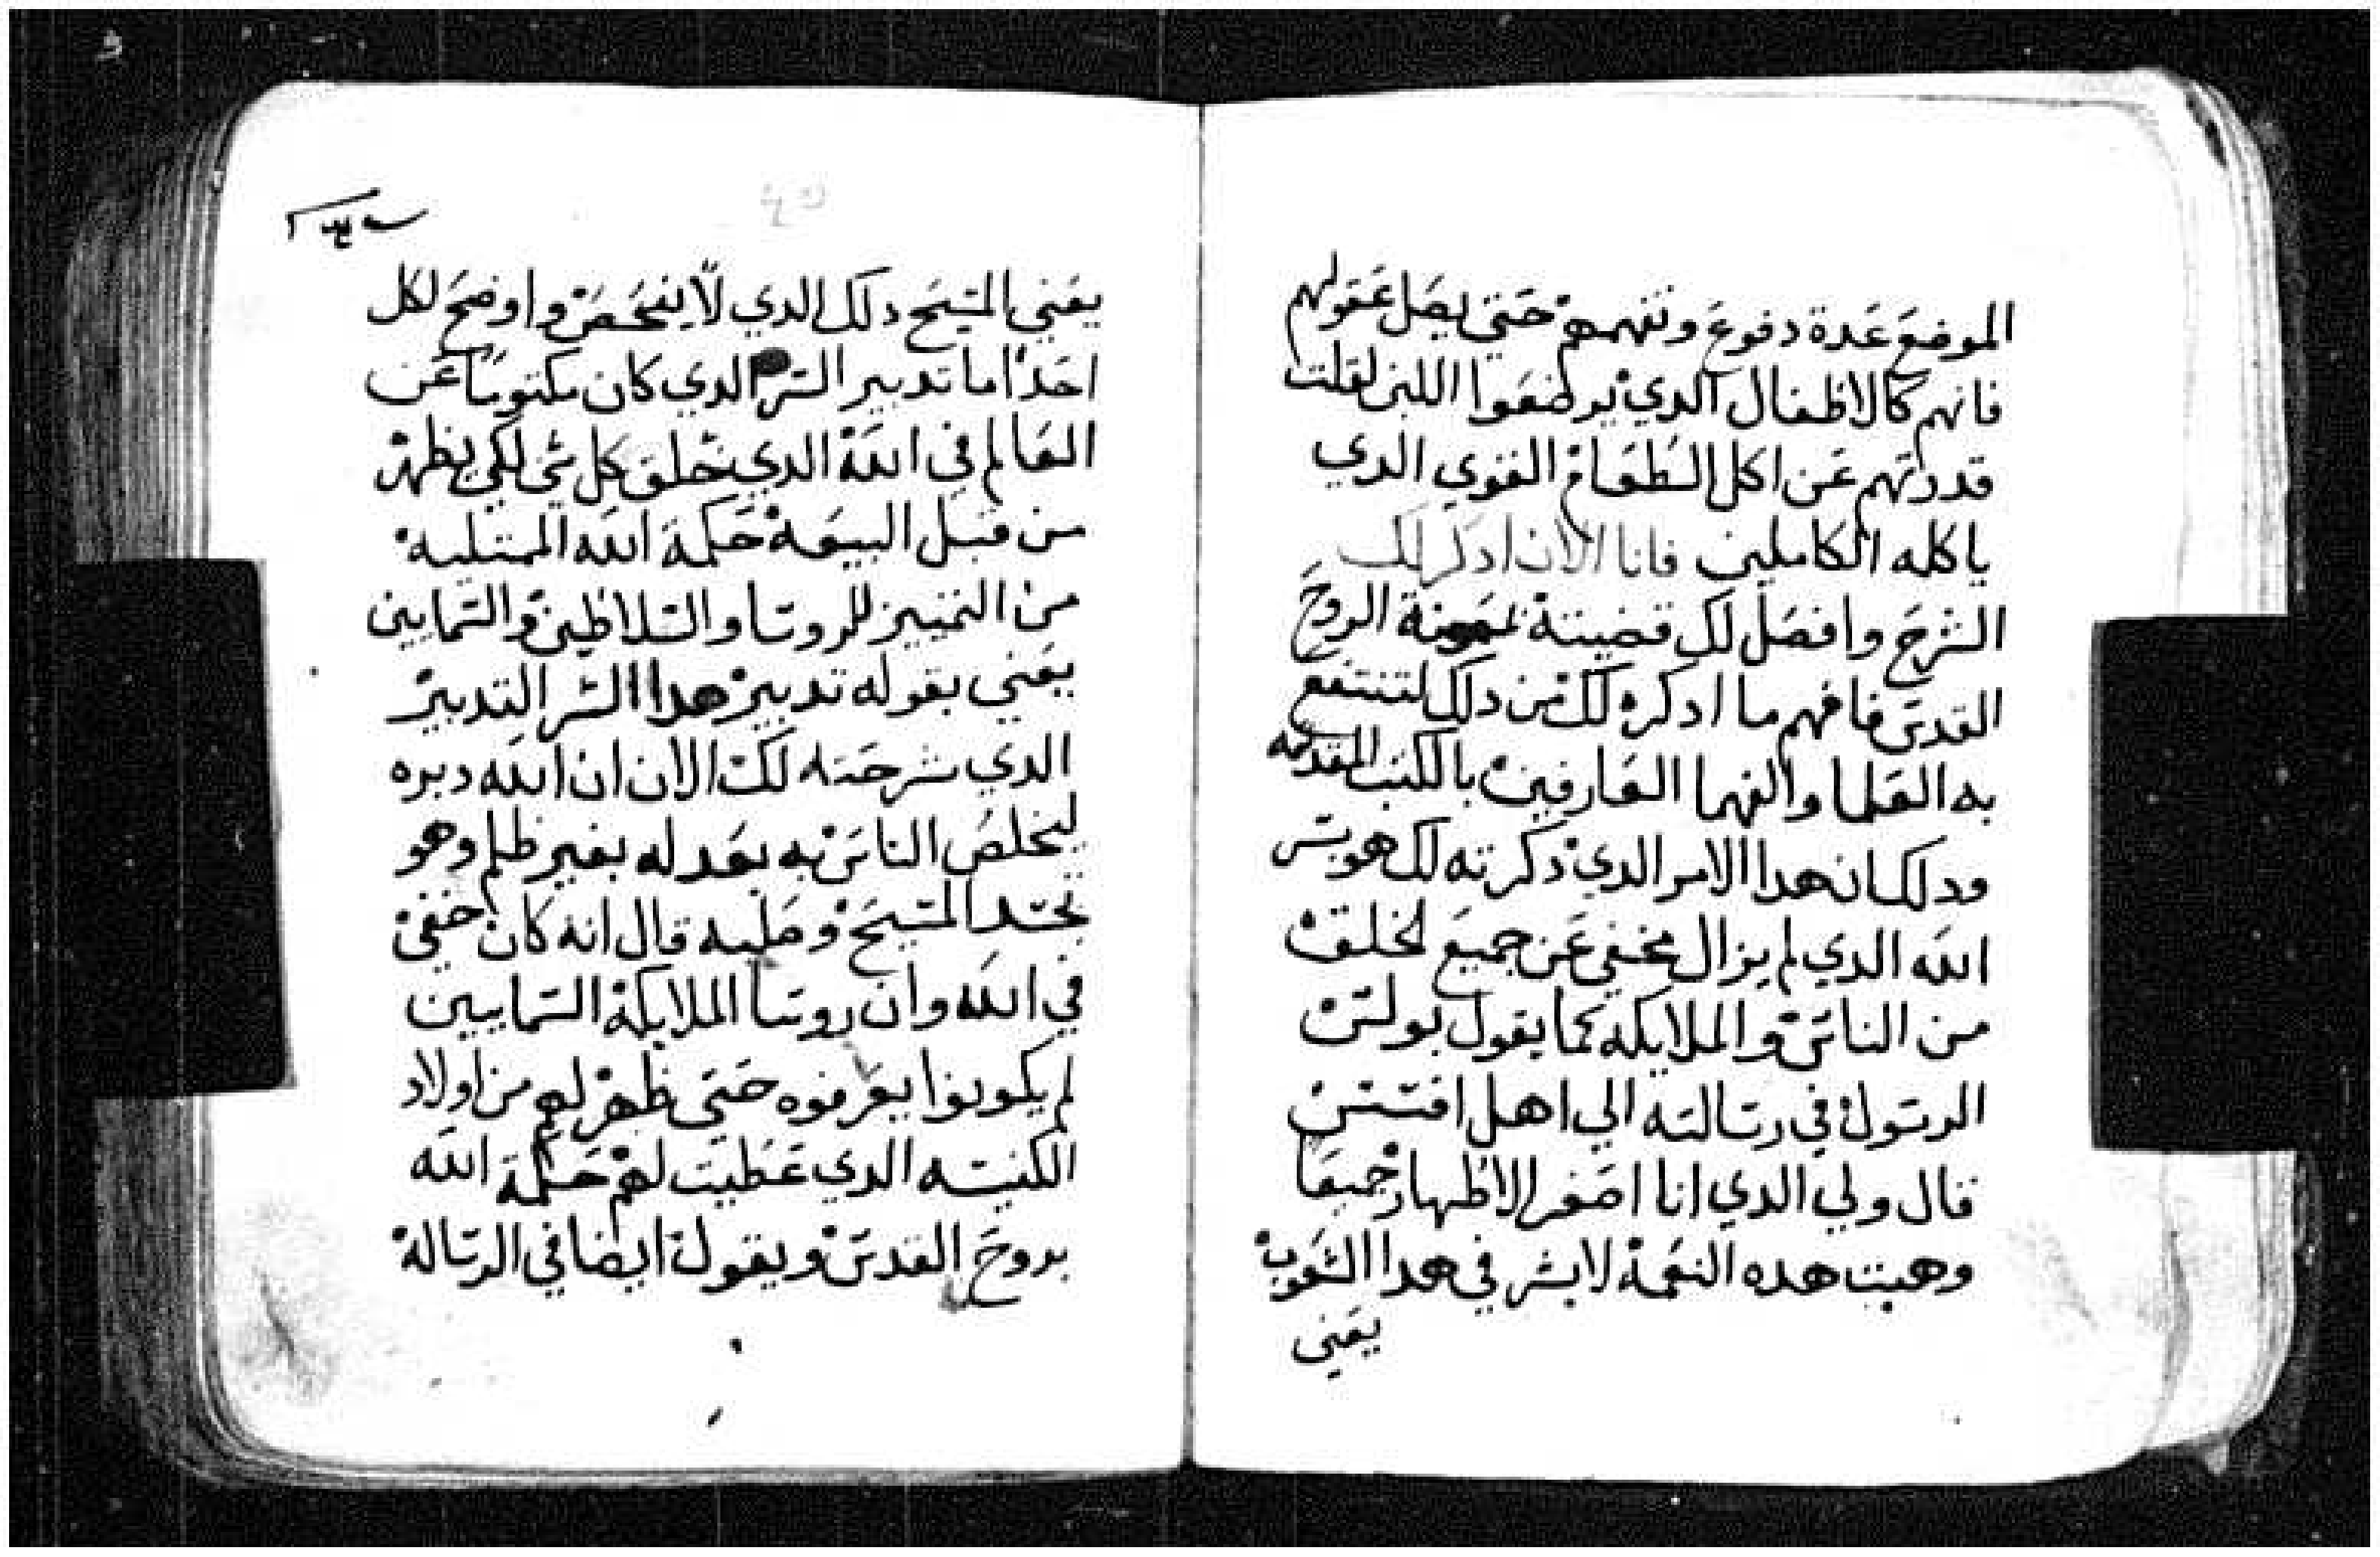 الموضع عدة دفوع وتفهمهم حتي يصل عقولهم
فانهم كالاطفال الدي يرضعوا اللبن لقلت
قدرتهم عن اكل الطعام القوي الدي
ياكله الكاملين فانا الان ادكر لك
الشرح وافصل لك قضيته بمعونة الروح
القدس فافهم ما ادكره لك من دلك لتنتفع
به العلما والفهما العارفين بالكتب المقدسه
ودلك ان هدا الامر الدي دكرته لك هو سر
الله الدي لم يزال مخفي عن جميع الخلق
من الناس والملايكه كما يقول بولس
الرسول في رسالته الي اهل افسس
قال ولي الدي انا اصغر الاطهار جميعا
وهبت هده النعمة لابشر في هدا الشعوب
يعني
يعني المسيح دلك الدي لا يفحص واوضح لكل
احدا ما تدبير السر الدي كان مكتوما عن
العالم في الله الدي خلق كل شي لكي يظهر
من قبل البيعة حكمة الله الممتليه
من التمييز للروسا والسلاطين والسمايين
يعني بقوله تدبير هدا السر التدبير
الدي شرحته لك الان ان الله دبره
ليخلص الناس به بعدله بغير ظلم وهو
تجسد المسيح وصلبه قال انه كان خفي
في الله وان روسا الملايكة السماييين
لم يكونوا يعرفوه حتي ظهر لهم من اولاد
الكنيسه الدي عطيت لهم حكمة الله
بروح القدس ويقول ايضا في الرسالة